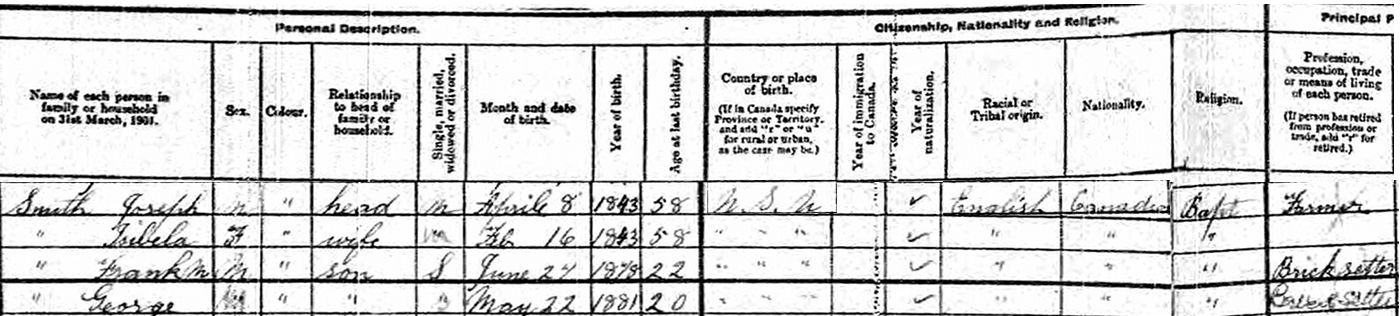 Personal Description. Citizenship, Nationality and Religion. Principal P
Name of each person in family or household on 31st March, 1901.
Sex.
Colour.
Relationship to head of family or household.
Single, married, widowed or divorced.
Month and date of birth.
Year of birth.
Age at last birthday.
Country or place of birth.
(If in Canada specify Province or Territory, and add "r" or "u" for rural or urban, as the case may be.)
Year of immigration to Canada.
Year of naturalization.
Racial or Tribal origin.
Nationality.
Religion.
Profession, occupation, trade or means of living of each person.
(If person has retired from profession or trade, add "r" for retired.)
Smith Joseph M " head M Aprile 8 1843 58 N. S. u ✓ English Canadia Bapt Farmer
" Isibela F " wife m Feb 16 1843 58 " " " ✓ " " "
" Frank M. M " son S June 27 1878 22 " " " ✓ " " " Brick setter
" George " " May 22 1881 20 " " " ✓ " " " setter